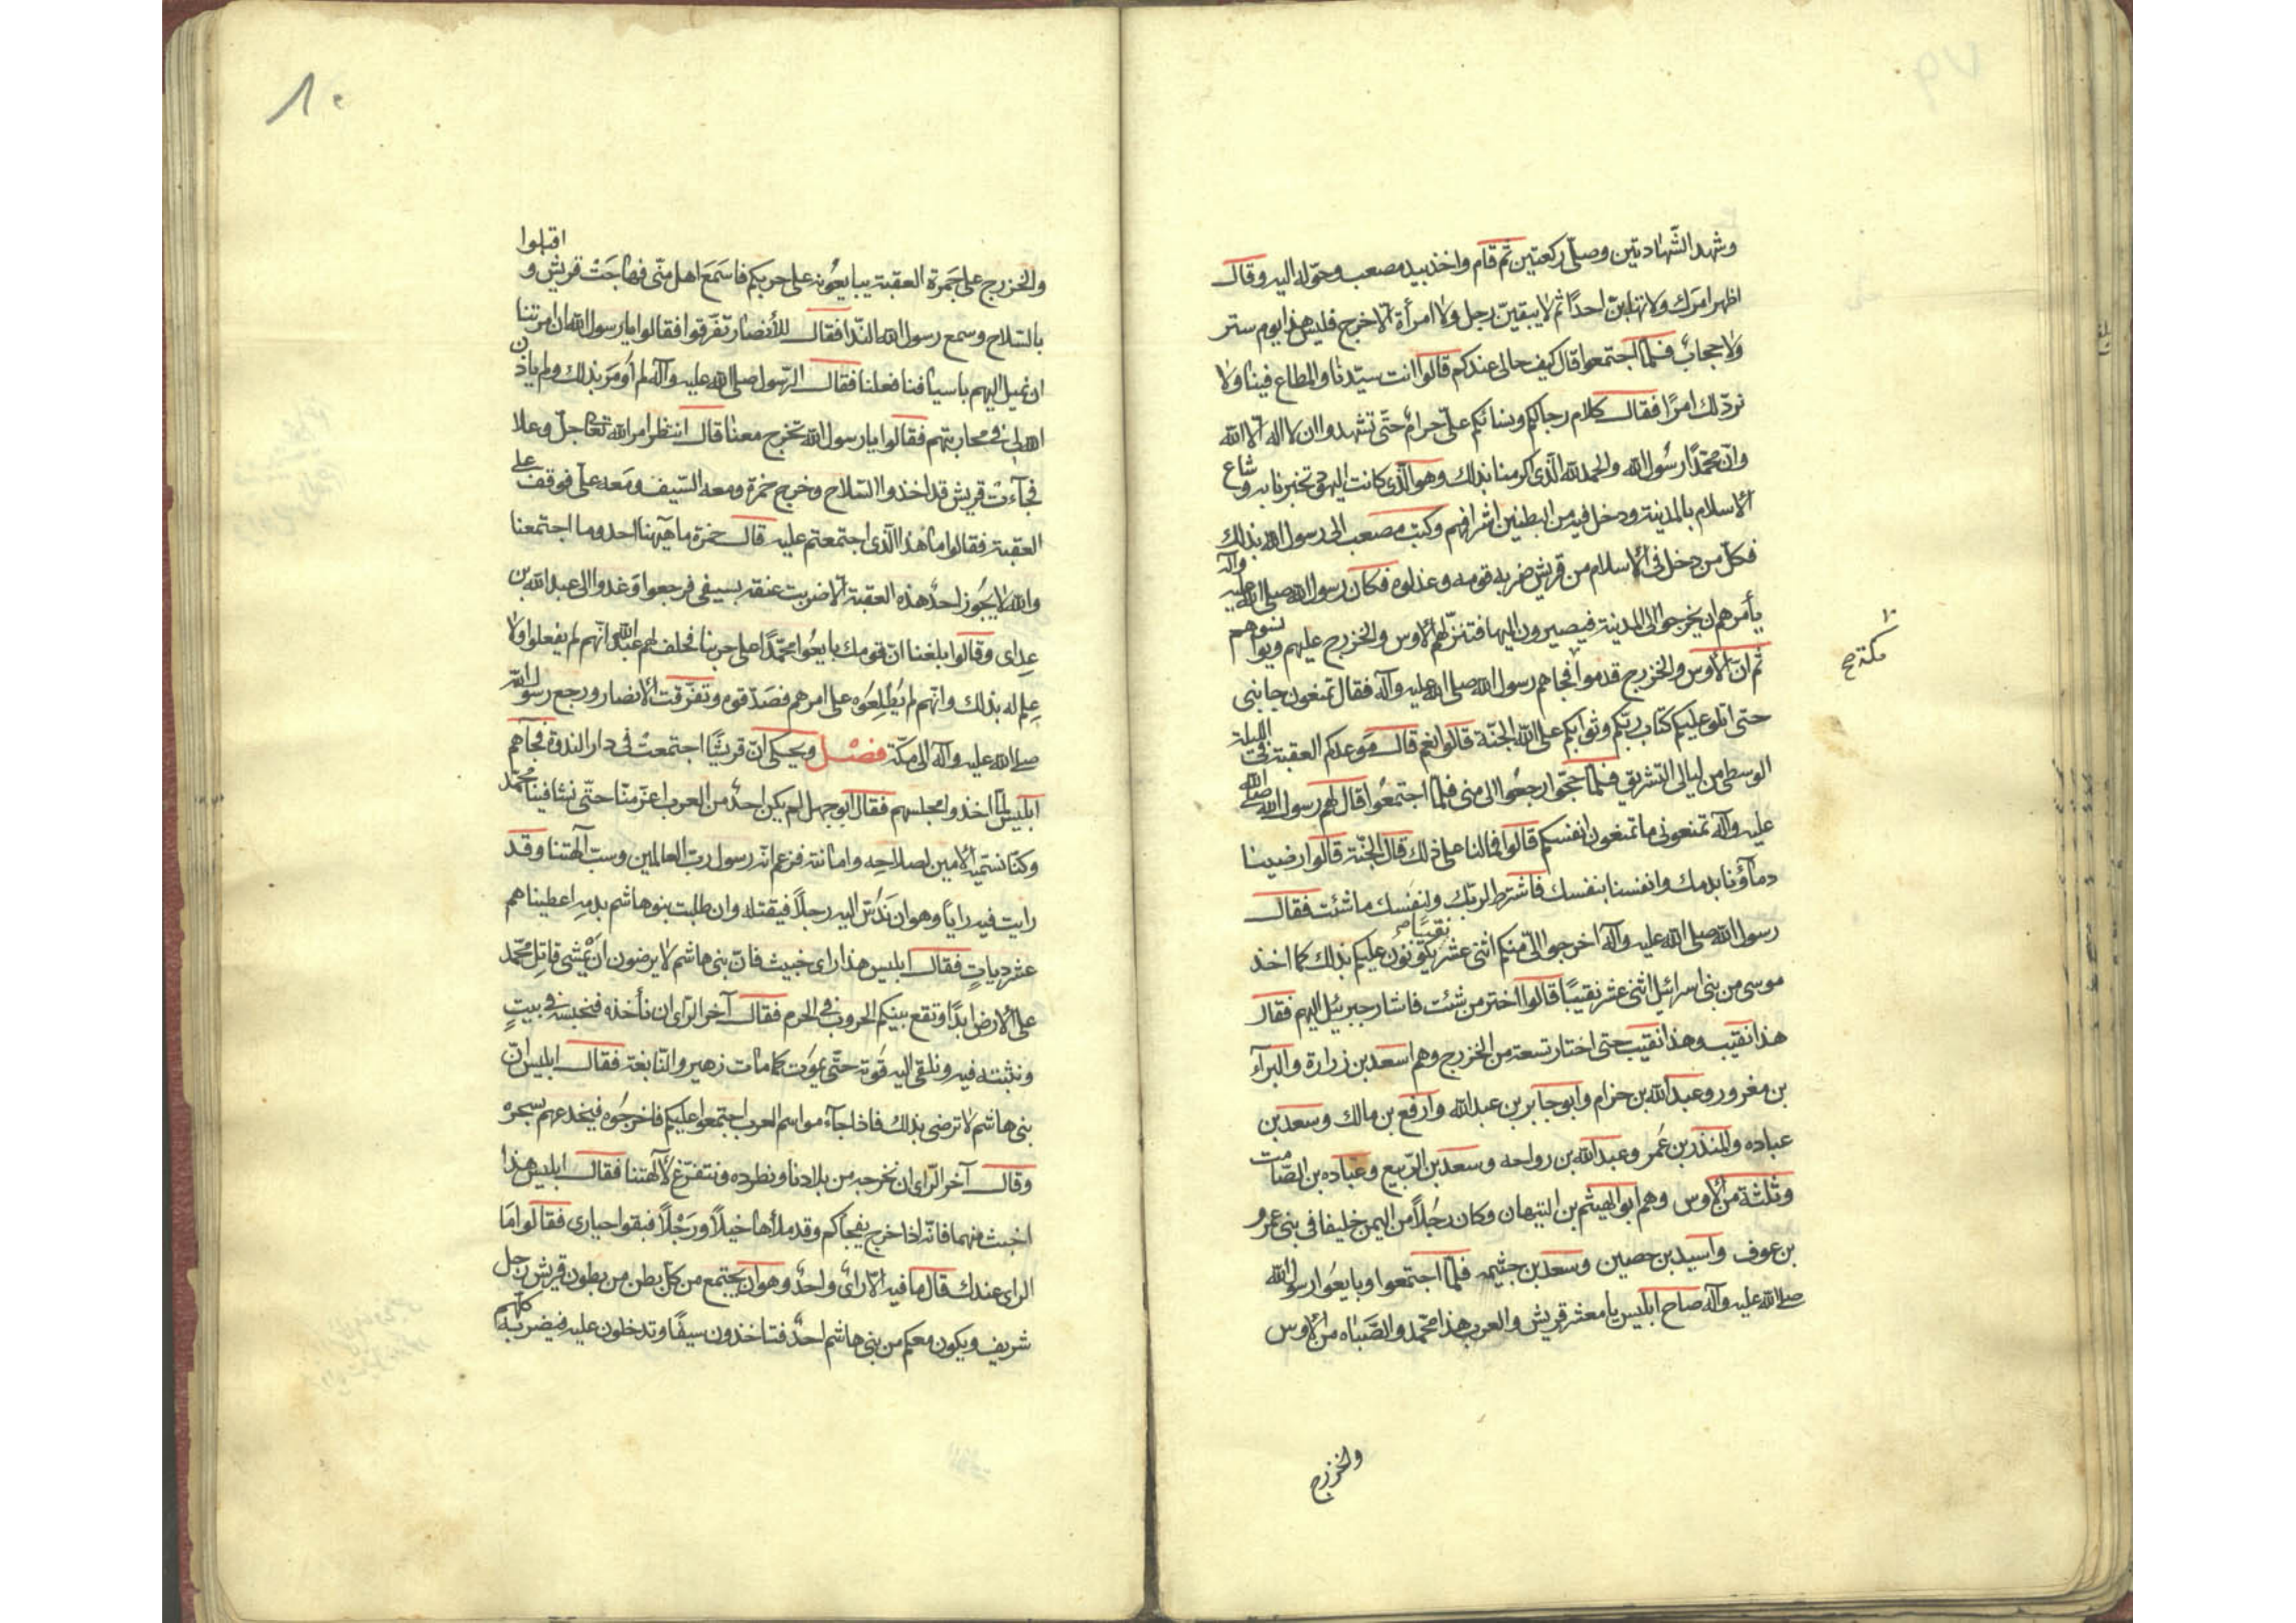 وشهد الشّهادتين وصلّى ركعتين ثم قام واخذ بيد مصعب وحوّله اليه وقال
اظهر امرك ولا تهابنّ احدًا ثم لا يبقينّ رجل ولا امرأة الّا خرج فليس هذا يوم ستر
ولا حجاب فلمّا اجتمعوا قال كيف حالى عندكم قالوا انت سيّدنا والمطاع فينا ولا
نردّ لك امرًا فقال كلام رجالكم ونسائكم علىّ حرام حتّى تشهدوا ان لا اله الّا الله
وانّ محمّدًا رسُول الله والحمد لله الّذى اكرمنا بذلك وهو الّذى كانت اليهود تخبرنا به وشاع
الاسلام بالمدينة ودخل فيه من البطنين اشرافهم وكتب مصعب الى رسول الله بذلك
فكلّ من دخل فى الاسلام من قريش ضربه قومه وعذلوه فكان رسول الله صلى الله عليه وآله
يأمرهم ان يخرجوا الى المدينة فيصيرون اليها فتنزلهم الاوس والخزرج عليهم ويواسوهم
ثم انّ الاوس والخزرج قدموا فجاهم رسول الله صلى الله عليه وآله فقال تمنعون جانبى
مكة صح
حتى اتلو عليكم كتاب ربّكم وثوابكم على الله الجنّة قالوا نعم قال موعدكم العقبة فى الليلة
الوسطى من ليالى التشريق فلمّا حجّوا رجعُوا الى منى فلمّا اجتمعُوا قال لهم رسول الله صلى الله
عليه وآله تمنعونى ما تمنعون انفسكم قالوا فما لنا على ذلك قال الجنّة قالوا رضينا
دمآؤنا بدمك وانفسنا بنفسك فاشترط لربّك ولنفسك ما شئت فقال
رسول الله صلى الله عليه وآله اخرجوا الىّ منكم اثنى عشر نقيبًا يكونون عليكم بذلك كما اخذ
موسى من بنى اسرائيل اثنى عشر نقيبًا قالوا اختر من شئت فاشار جبرئيل اليهم فقال
هذا نقيب وهذا نقيب حتى اختار تسعة من الخزرج وهم اسعد بن زرارة والبرآء
بن مغرور وعبد الله بن حزام وابو جابر بن عبد الله وارفع بن مالك وسعد بن
عباده والمنذر بن عمر وعبد الله بن رواحه وسعد بن الرّبيع وعبّاده بن الصّامت
وثلثة من الاوس وهم ابو الهيثم بن التيهان وكان رجُلًا من اليمن خليفا فى بنى عمرو
بن عوف واسيد بن حصين وسعد بن خثيمه فلمّا اجتمعوا وبايعُوا رسول الله
صلى الله عليه وآله صاح ابليس يا معشر قريش والعرب هذا محمّد والصّباه من الاوس
والخزرج
٨٠
والخزرج على جَمرة العقبة يبايعُونه على حربكم فاسمَعَ اهل منًى فهاجَتْ قريش واقبلوا
بالسّلاح وسمع رسول الله النّدا فقال للأنصار تفرّقوا فقالوا يا رسول الله ان امرتنا
ان نميل اليهم باسيافنا فعلنا فقال الرّسول صلى الله عليه وآله لم اُومَر بذلك ولم ياذن
الله لى فى محاربتهم فقالوا يا رسول الله تخرج معنا قال انتظر امر الله تعا جلّ وعلا
فجآءتْ قريش قد اخذوا السّلاح وخرج حمزة ومعه السّيف ومَعه علىّ فوقف على
العقبة فقالوا ما هذا الّذى اجتمعتم عليه قال حمزة ما هيهنا احد وما اجتمعنا
والله لا يجُوز احدٌ هذه العقبة الّا ضربت عنقه بسيفى فرجعوا وَغدوا الى عبد الله بن
عداى وقالوا بلغنا انّ قومك بايعُوا محمّدًا على حربنا فحلف لهم عبد الله انّهم لم يفعلوا ولا
عِلم له بذلك وانّهم لم يُطْلِعُوه على امرهم فصَدّقوه وتفرّقت الانصار ورجع رسول الله
صلى الله عليه وآله الى مكّة فصْل ويحكى انّ قريشًا اجتمعتْ فى دار الندوة فجآهم
ابليس لمّا اخذوا مجلسهم فقال ابو جهل لم يكن احدٌ من العرب اعزّ منّا حتّى نشا فينا محمّد
وكنّا نسمّيه الامين لصلاحِه وامانته فزعم انّه رسول ربّ العالمين وسبّ آلهتنا وقد
رايت فيه رايًا وهو ان نَدُسّ اليه رجلًا فيقتله وان طلبت بنو هاشم بدمِه اعطيناهم
عشر دياتٍ فقال ابليس هذا راى خبيث فانّ بنى هاشم لا يرضون ان يَمْشى قاتِل محمّد
على الارض ابدًا وتقع بينكم الحروب فى الحرم فقال آخر الرّاى ان نأخذه فنحبسه فى بيتٍ
ونثبته فيه ونلقى اليه قوته حتّى يموَت كما مات زهير والنّابغة فقال ابليس انّ
بنى هاشم لا ترضى بذلك فاذا جآء مواسم العرب اجتمعوا عليكم فاخرجُوه فيخدعهم بسحره
وقال آخر الرّاى ان نخرجه من بلادنا ونطرده ونتفرّغ لآلهتنا فقال ابليس هذا
اخبث منهما فانّه اذا خرج يفجأكم وقد ملأها خيلًا ورَجْلًا فبقوا حيارى فقالوا فما
الراى عندك قال ما فيه الّا رأىٌ واحدٌ وهو ان يجتمع من كلّ بطن من بطون قريش رجل
شريف ويكون معكم من بنى هاشم احدٌ فتاخذون سيفًا وتدخلون عليه فيضربه كلّهم